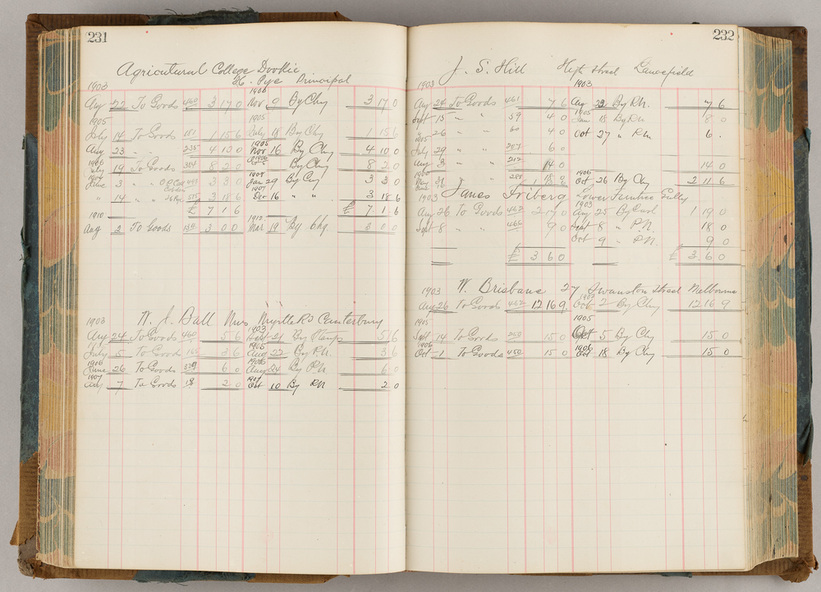 231
Agricultural College Dookie
Pye Principal
1903 1906
Aug 22 To Goods 3 17 0 Nov 9 By Chq 3 17 0
1905 1905
July 14 To Goods 1 15 6 July 19 By Chq 1 15 6
Aug 23 " " 4 10 0 Nov 16 By Chq 4 10 0
July 19 To Goods 8 2 0 By Chq 8 2 0
June 3 " " 3 3 0 Jan 29 By Chq 3 3 0
" 14 " " 3 18 6 Dec 16 " " 3 18 6
£ 7 1 6 £ 7 1 6
1910 1910
Aug 2 To Goods 3 0 0 Mar 19 By Chq
1903 W. J. Ball Mrs Canterbury
Aug 24 To Goods 5 6 21 By Stamps 5 6
July 5 To Goods 3 6 Aug 22 By P.N. 3 6
1906
June 26 To Goods 6 0 Aug 24 By P.N. 6 0
1907
Aug 7 To Goods 2 0 Oct 10 By P.N. 2 0
232
J. S. Hill High Street Lancefield
1903 1903
Aug 24 To Goods 461 7 6 Aug 22 By P.N. 7 6
Sept 15 " " 59 4 0 18 By P.N. 8 0
26 " " 4 0 Oct 27 " P.N. 6
July 29 " " 6 0
Aug 3 " " 14 0 14 0
31 Oct 26 By Chq 2 11 6
1903 James Friberg Lower Ferntree Gully
1903
Aug 26 To Goods 462 2 17 0 Aug 25 By 1 19 0
Sept 8 " " 466 9 0 Sept 8 " P.N. 18 0
Oct 9 " P.N. 9 0
£ 3 6 0 £ 3 6 0
1903 W. Brisbane 27 Swanston Street Melbourne
Aug 26 To Goods 12 16 9 Oct 2 By Chq 12 16 9
1905 1905
Sept 14 To Goods 15 0 Oct 5 By Chq 15 0
1906 1906
Oct 1 To Goods 450 15 0 Oct 18 By Chq 15 0